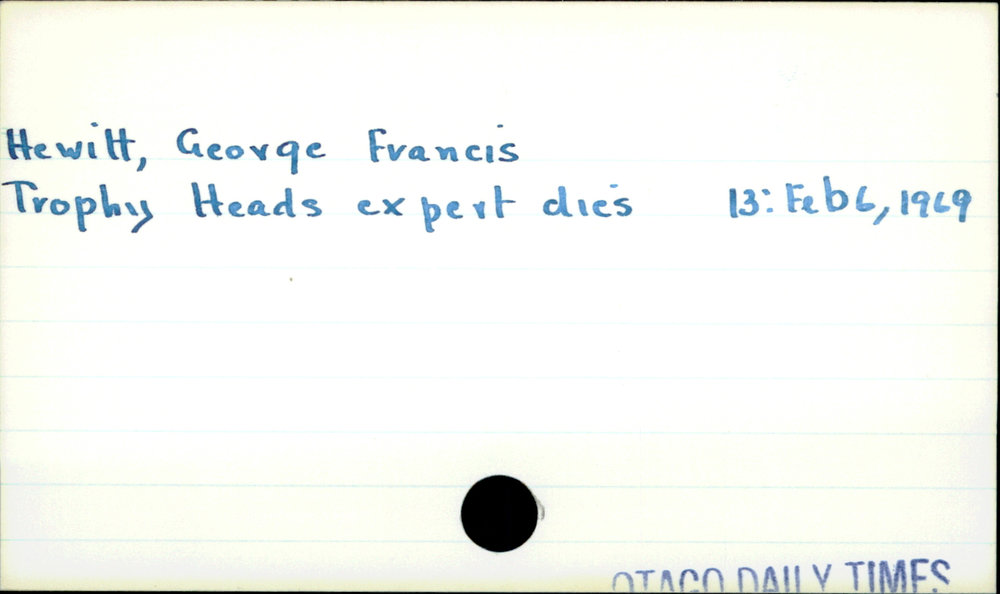 Hewitt, George Francis
Trophy Heads expert dies 13: Feb 6, 1969
OTAGO DAILY TIMES